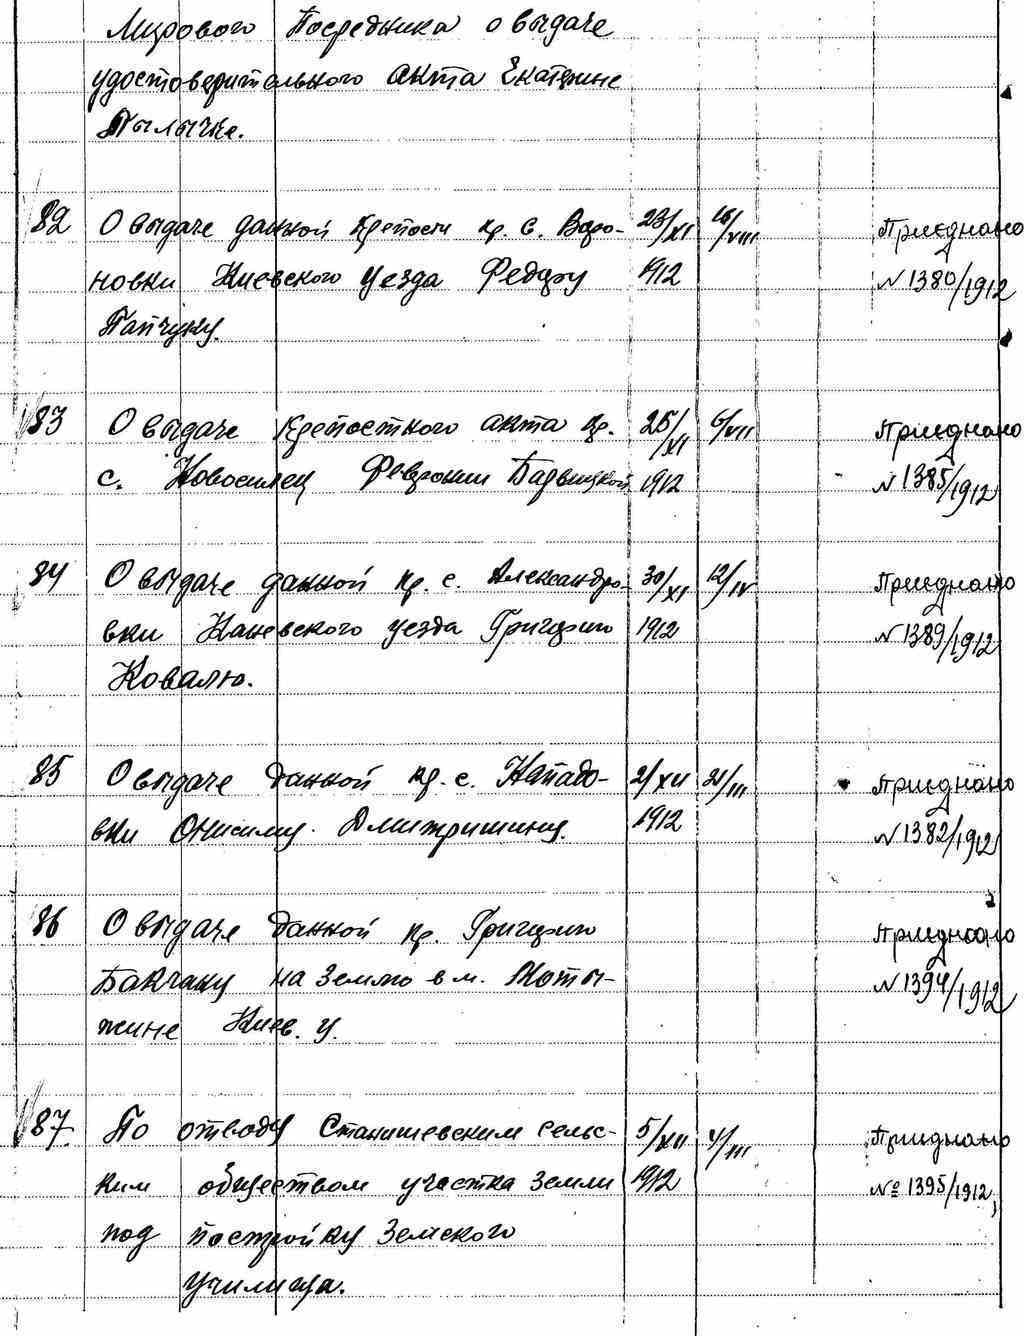 Мирового Посредника о выдаче
удостоверительного акта Екатерине
Пылычке.
82 О выдаче данной крепости кр. с. Воро- 23/XI 16/VIII Приєднано
новки Киевского уезда Федору 1912 № 1380/1912
Папчуку.
83 О выдаче крепостного акта кр. 25/XI 6/VII Приєднано
с. Новосилец Февронии Барвицкой 1912 № 1385/1912
84 О выдаче данной кр. с. Александро- 30/XI 12/IV Приєднано
вки Каневского уезда Григорию 1912 № 1389/1912
Ковалю.
85 О выдаче данной кр. с. Нападо- 2/XII 21/III Приєднано
вки Онисиму Дмитришину. 1912 № 1382/1912
86 О выдаче данной кр. Григорию Приєднано
Бакчаку на землю в м. Моты- № 1394/1912
жине Киев. у.
87. По отводу Станишевским сельс- 5/XII 4/III Приєднано
ким обществом участка земли 1912 № 1395/1912
под постройку земского
училища.